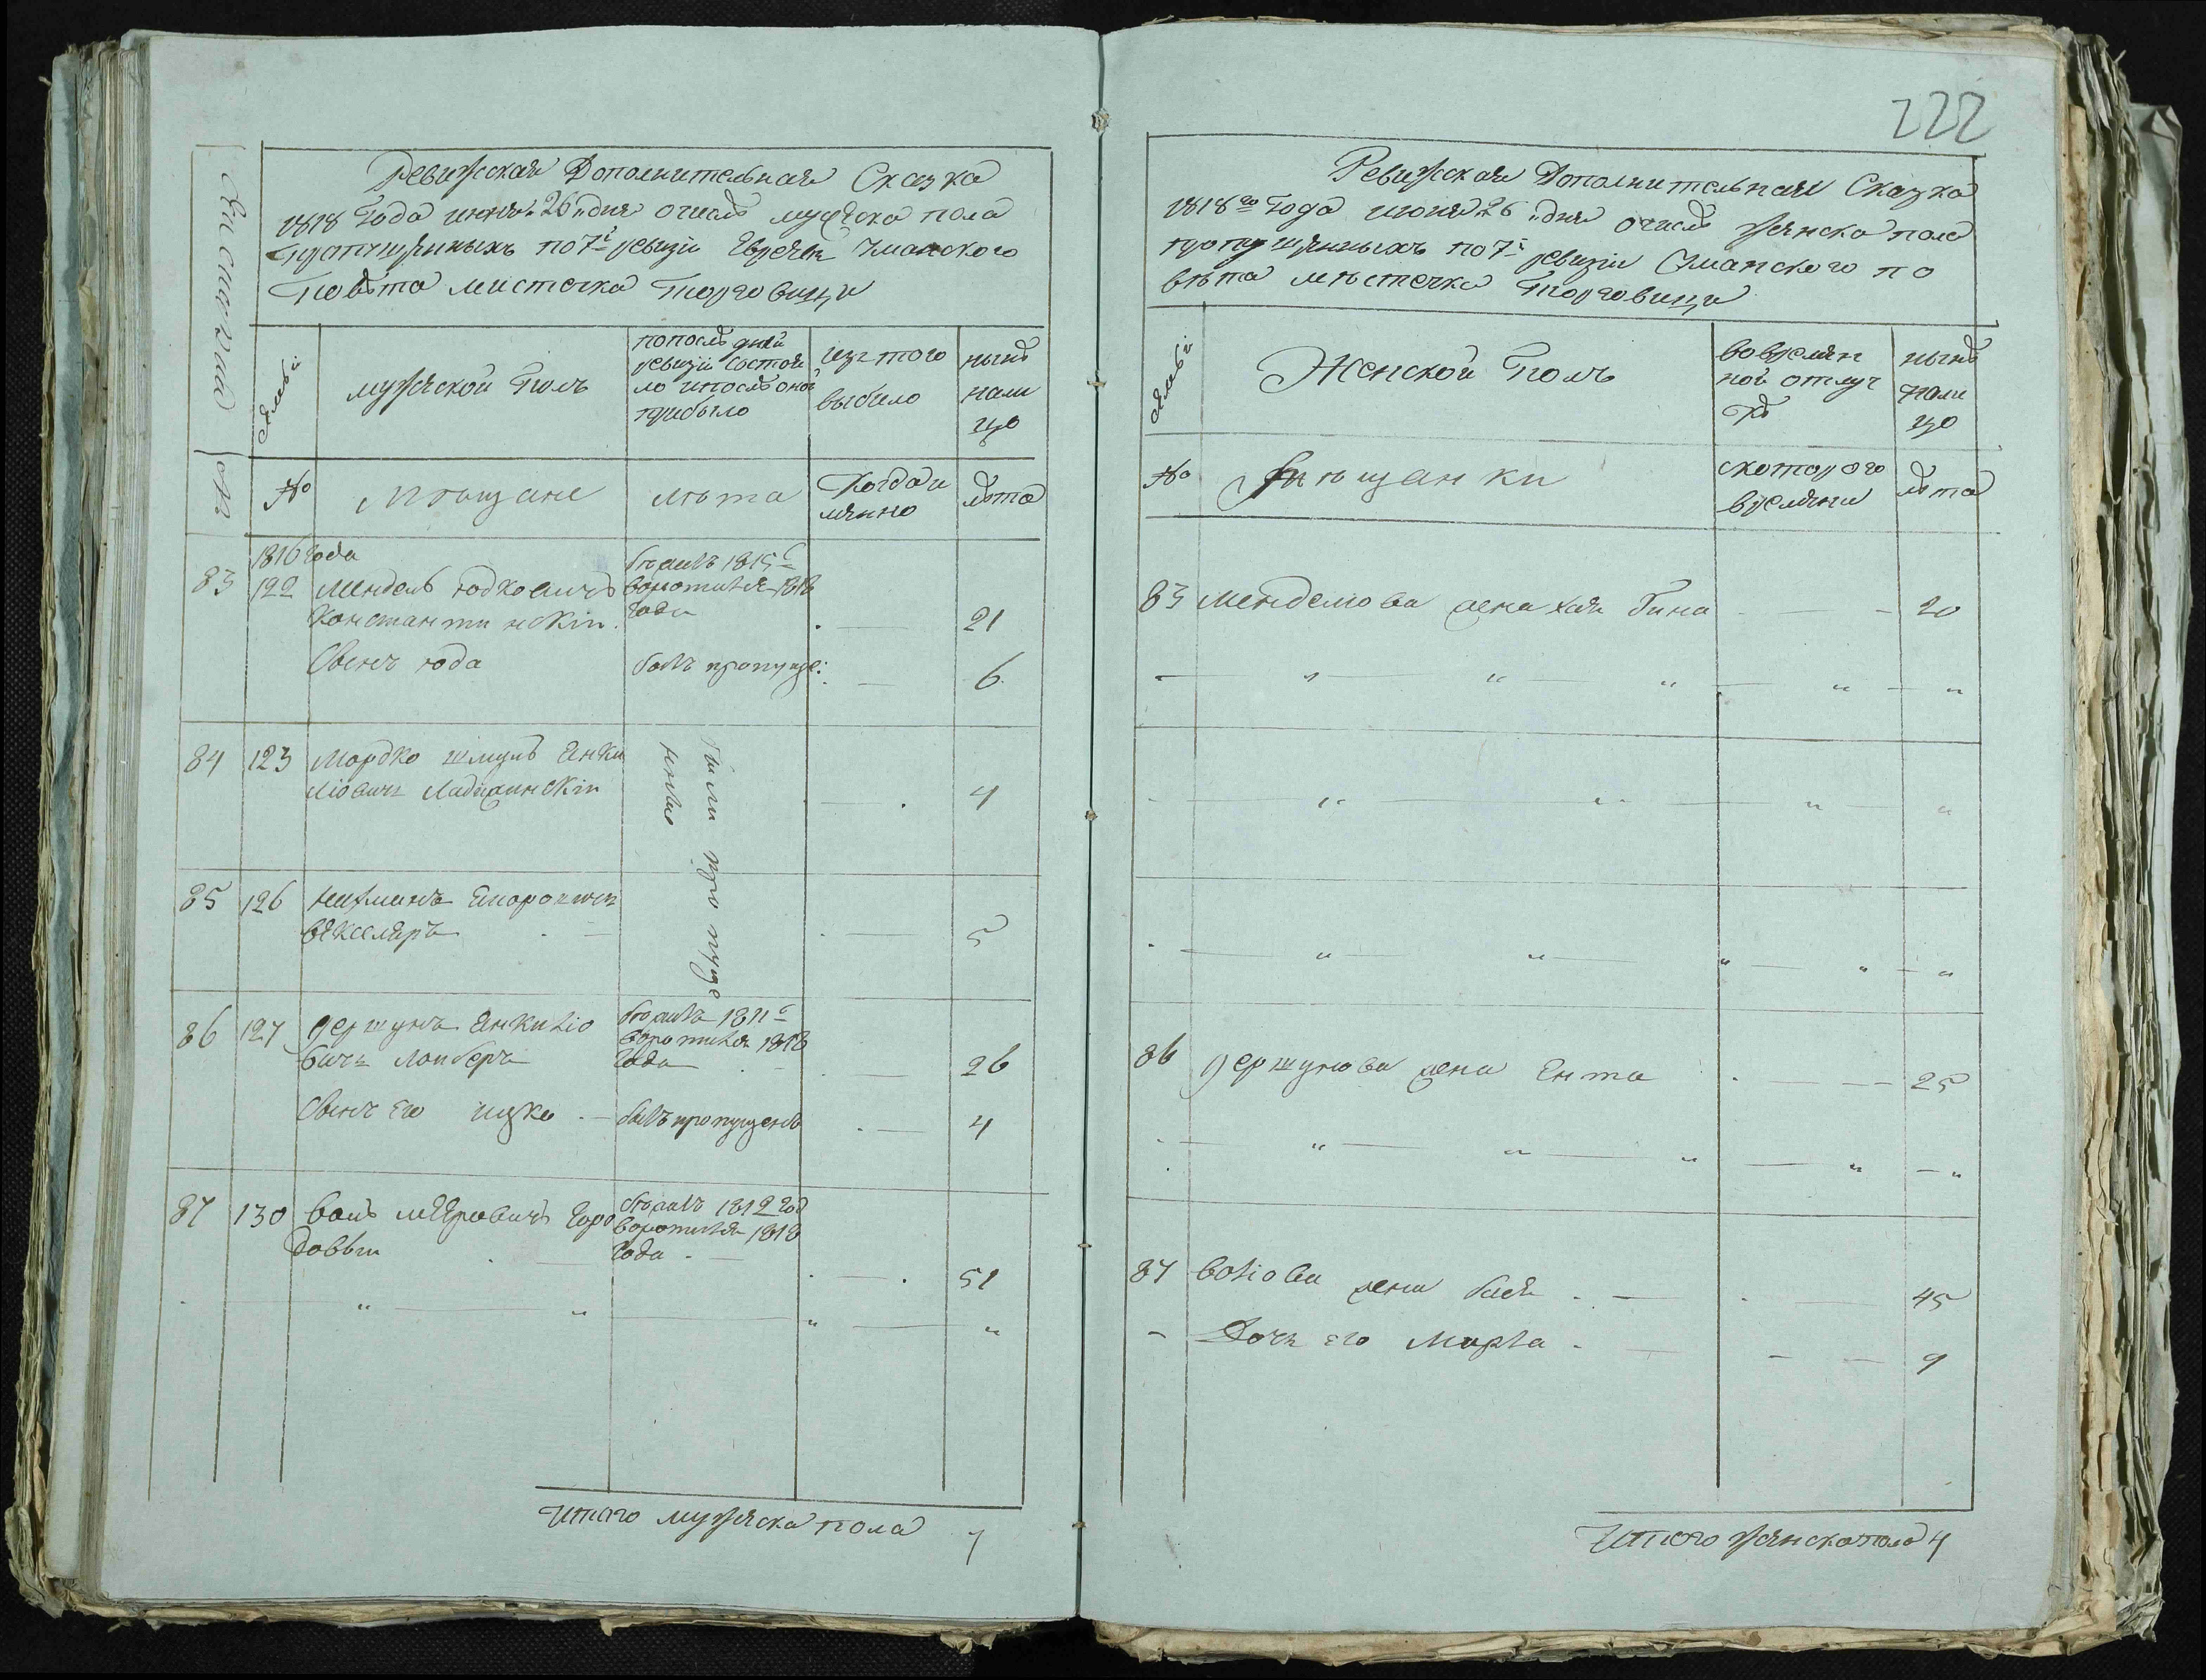 Ревижская Дополнительная Сказка
1818 Года июня 26 дня о числѣ мужеска пола
пропущенныхъ по 7й ревизіи Евреевъ Уманского
Повѣта местечка Торговици
семьи
мужеской Полъ
по послѣдней
ревизіи состоя
ло и послѣ оной
прибыло
изъ того
выбыло
нынѣ
нали
цо
№
Мещане
лѣта
Когда и
менно
лѣта
83
1816 года
122
Мендель Юдковичъ
Константинскій
бѣжалъ 1815
воротился 1818
года
21
Сынъ Юда
былъ пропуще:
6
84 123 Мордко Шмуль Янки
ліовичъ Ладижинскій
4
были пропуще
нные
85 126 Нахманъ
векслеръ
5
86 127 Гершунъ Янкиліо
вичъ
бѣжалъ 1811
воротился 1818
года
26
Сынъ его Ицко
былъ пропущенъ
4
87 130 Воль Меяровичъ
бѣжалъ 1812 год
воротился 1818
года
51
Итого мужеска пола 7
222
Ревижская Дополнительная Сказка
1818го Года июня 26 дня о числѣ женска пола
пропущенныхъ по 7й ревизіи Уманского по
вѣта мѣстечка Торговици
семьи
Женской Полъ
во времян
ной отлуч
кѣ
нынѣ
нали
цо
№
Мѣщанки
с которого
времяни
лѣта
83 Менделіова жена Хая Гина 20
86 Гершунова жена Ента 25
87 Воліова жена Бася 45
Дочь его Маріа 9
Итого женска пола 4